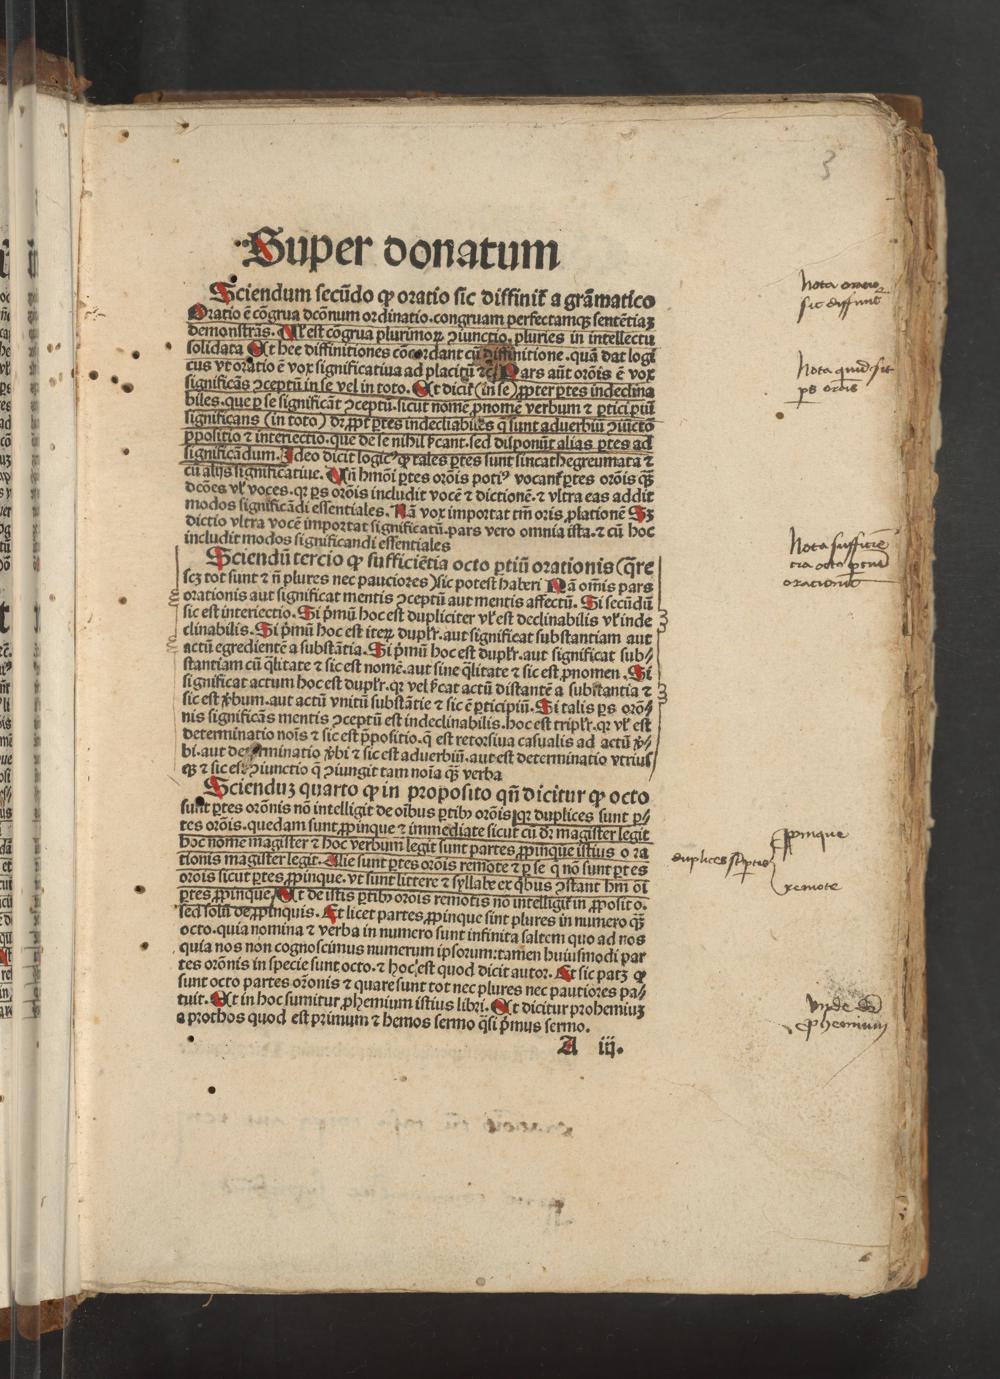 3
Super donatum
Sciendum secūdo ꝙ oratio sic diffinit᷑ a grāmatico
Oratio ē cōgrua dcōnum ordinatio.congruam perfectamqꝫ sentētiaꝫ
demonstrās. Ul᷑ est cōgrua plurimoꝝ ꝯiunctio.pluries in intellectu
solidata Et hee diffinitiones cōcordant cū diffinitione.quā dat logi
cus vt oratio ē vox significatiua ad placitū ⁊c̄ Pars aūt orōis ē vox
significās ꝯceptū in se vel in toto. Et dicit᷑ (in se) ꝓpter ꝑtes indeclina
biles.que ꝑ se significāt ꝯceptū.sicut nomē ꝓnomē verbum ⁊ ꝑticipiū
significans (in toto) dr̄ ꝓpt̄ ꝑtes indecliabiles q̄ sunt aduerbiū ꝯiūctō
p̄positio ⁊ interiectio.que de se nihil sīcant.sed disponūt alias ꝑtes ad
significādum. Ideo dicit logicꝰ ꝙ tales ꝑtes sunt sincathegreumata ⁊
cū alijs significatiue. Uñ hmōi ꝑtes orōis potiꝰ vocant᷑ ꝑtes orōis q̄ꝫ
dcōes vl᷑ voces.qꝛ ps orōis includit vocē ⁊ dictionē.⁊ vltra eas addit
modos significādi essentiales. Nā vox importat tm̄ oris ꝓlationē Sꝫ
dictio vltra vocē importat significatū.pars vero omnia ista.⁊ cū hoc
includit modos significandi essentiales
Sciendū tercio ꝙ sufficiētia octo ꝑtiū orationis (q̄re
scꝫ tot sunt ⁊ ñ plures nec pauciores) sic potest haberi Nā om̄is pars
orationis aut significat mentis ꝯceptū aut mentis affectū. Si secūdū
sic est interiectio. Si p̄mū hoc est dupliciter vl᷑ est declinabilis vl᷑ inde
clinabilis. Si p̄mū hoc est iteꝝ duplr̄.aut significat substantiam aut
actū egredientē a substātia. Si p̄mū hoc est duplr̄.aut significat sub⸗
stantiam cū q̄litate ⁊ sic est nomē.aut sine q̄litate ⁊ sic est ꝓnomen. Si
significat actum hoc est duplr̄.qꝛ vel sīcat actū distantē a substantia ⁊
sic est v̄bum.aut actū vnitū substātie ⁊ sic ē ꝑticipiū. Si talis ꝑs orō⸗
nis significās mentis ꝯceptū est indeclinabilis.hoc est triplr̄.qꝛ vl᷑ est
determinatio noīs ⁊ sic est p̄positio.q̄ est retorsiua casualis ad actū v̄⸗
bi.aut determinatio v̄bi ⁊ sic est aduerbiū.aut est determinatio vtrius
qꝫ ⁊ sic est ꝯiunctio q̄ ꝯiungit tam noīa q̄ꝫ verba
Scienduꝫ quarto ꝙ in proposito qn̄ dicitur ꝙ octo
sunt ꝑtes orōnis nō intelligit de oībus ꝑtibꝰ orōis qꝛ duplices sunt ꝑ⸗
tes orōis.quedam sunt ꝓpinque ⁊ immediate sicut cū dr̄ magister legit
hoc nome magister ⁊ hoc verbum legit sunt partes ꝓpinque istius o ra
tionis magister legit. Alie sunt ꝑtes orōis remote ⁊ ꝑ se q̄ nō sunt ꝑtes
orōis sicut ꝑtes ꝓpinque.vt sunt littere ⁊ syllabe ex q̄bus ꝯstant hm̄ oī
ꝑtes ꝓpinque Et de istis ꝑtibꝰ orōis remotis nō intelligit᷑ in ꝓposito.
sed solū de ꝓpinquis. Et licet partes ꝓpinque sint plures in numero q̄ꝫ
octo.quia nomina ⁊ verba in numero sunt infinita saltem quo ad nos
quia nos non cognoscimus numerum ipsorum:tamen huiusmodi par
tes orōnis in specie sunt octo.⁊ hoc est quod dicit autor. Et sic patꝫ ꝙ
sunt octo partes orōnis ⁊ quare sunt tot nec plures nec pautiores pa⸗
tuit. Et in hoc sumitur ꝓhemium istius libri. Et dicitur prohemiuꝫ
a prothos quod est primum ⁊ hemos sermo q̄si p̄mus sermo.
A iij.
Nota oratio
sic diffinit᷑
Nota quid sit
ps orōis
Nota sufficiē
tia octo ꝑtiū
orationis
duplices sūt ꝑtes
ꝓpinque
remote
Vnde dr̄
ꝓhemium